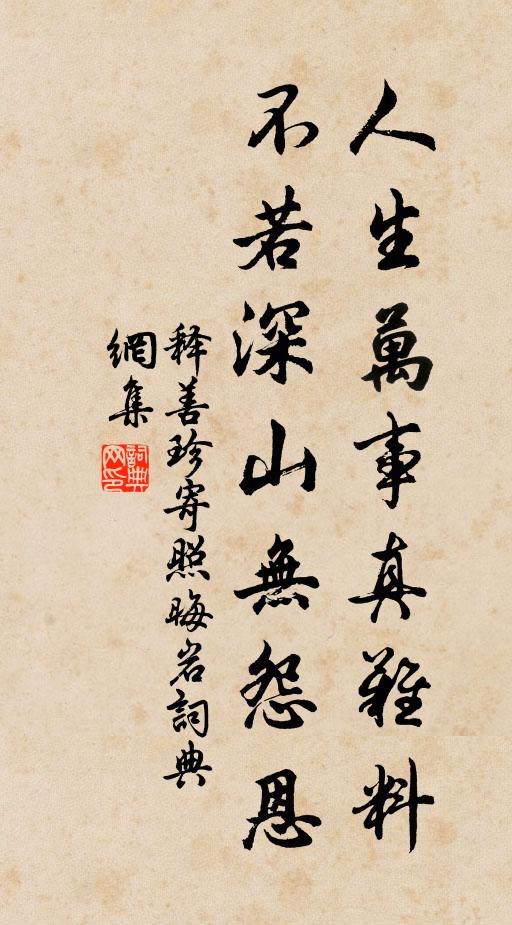 人生萬事真難料
不若深山無怨恩
释善珍寄照晦岩詞典
網集
詞典网印